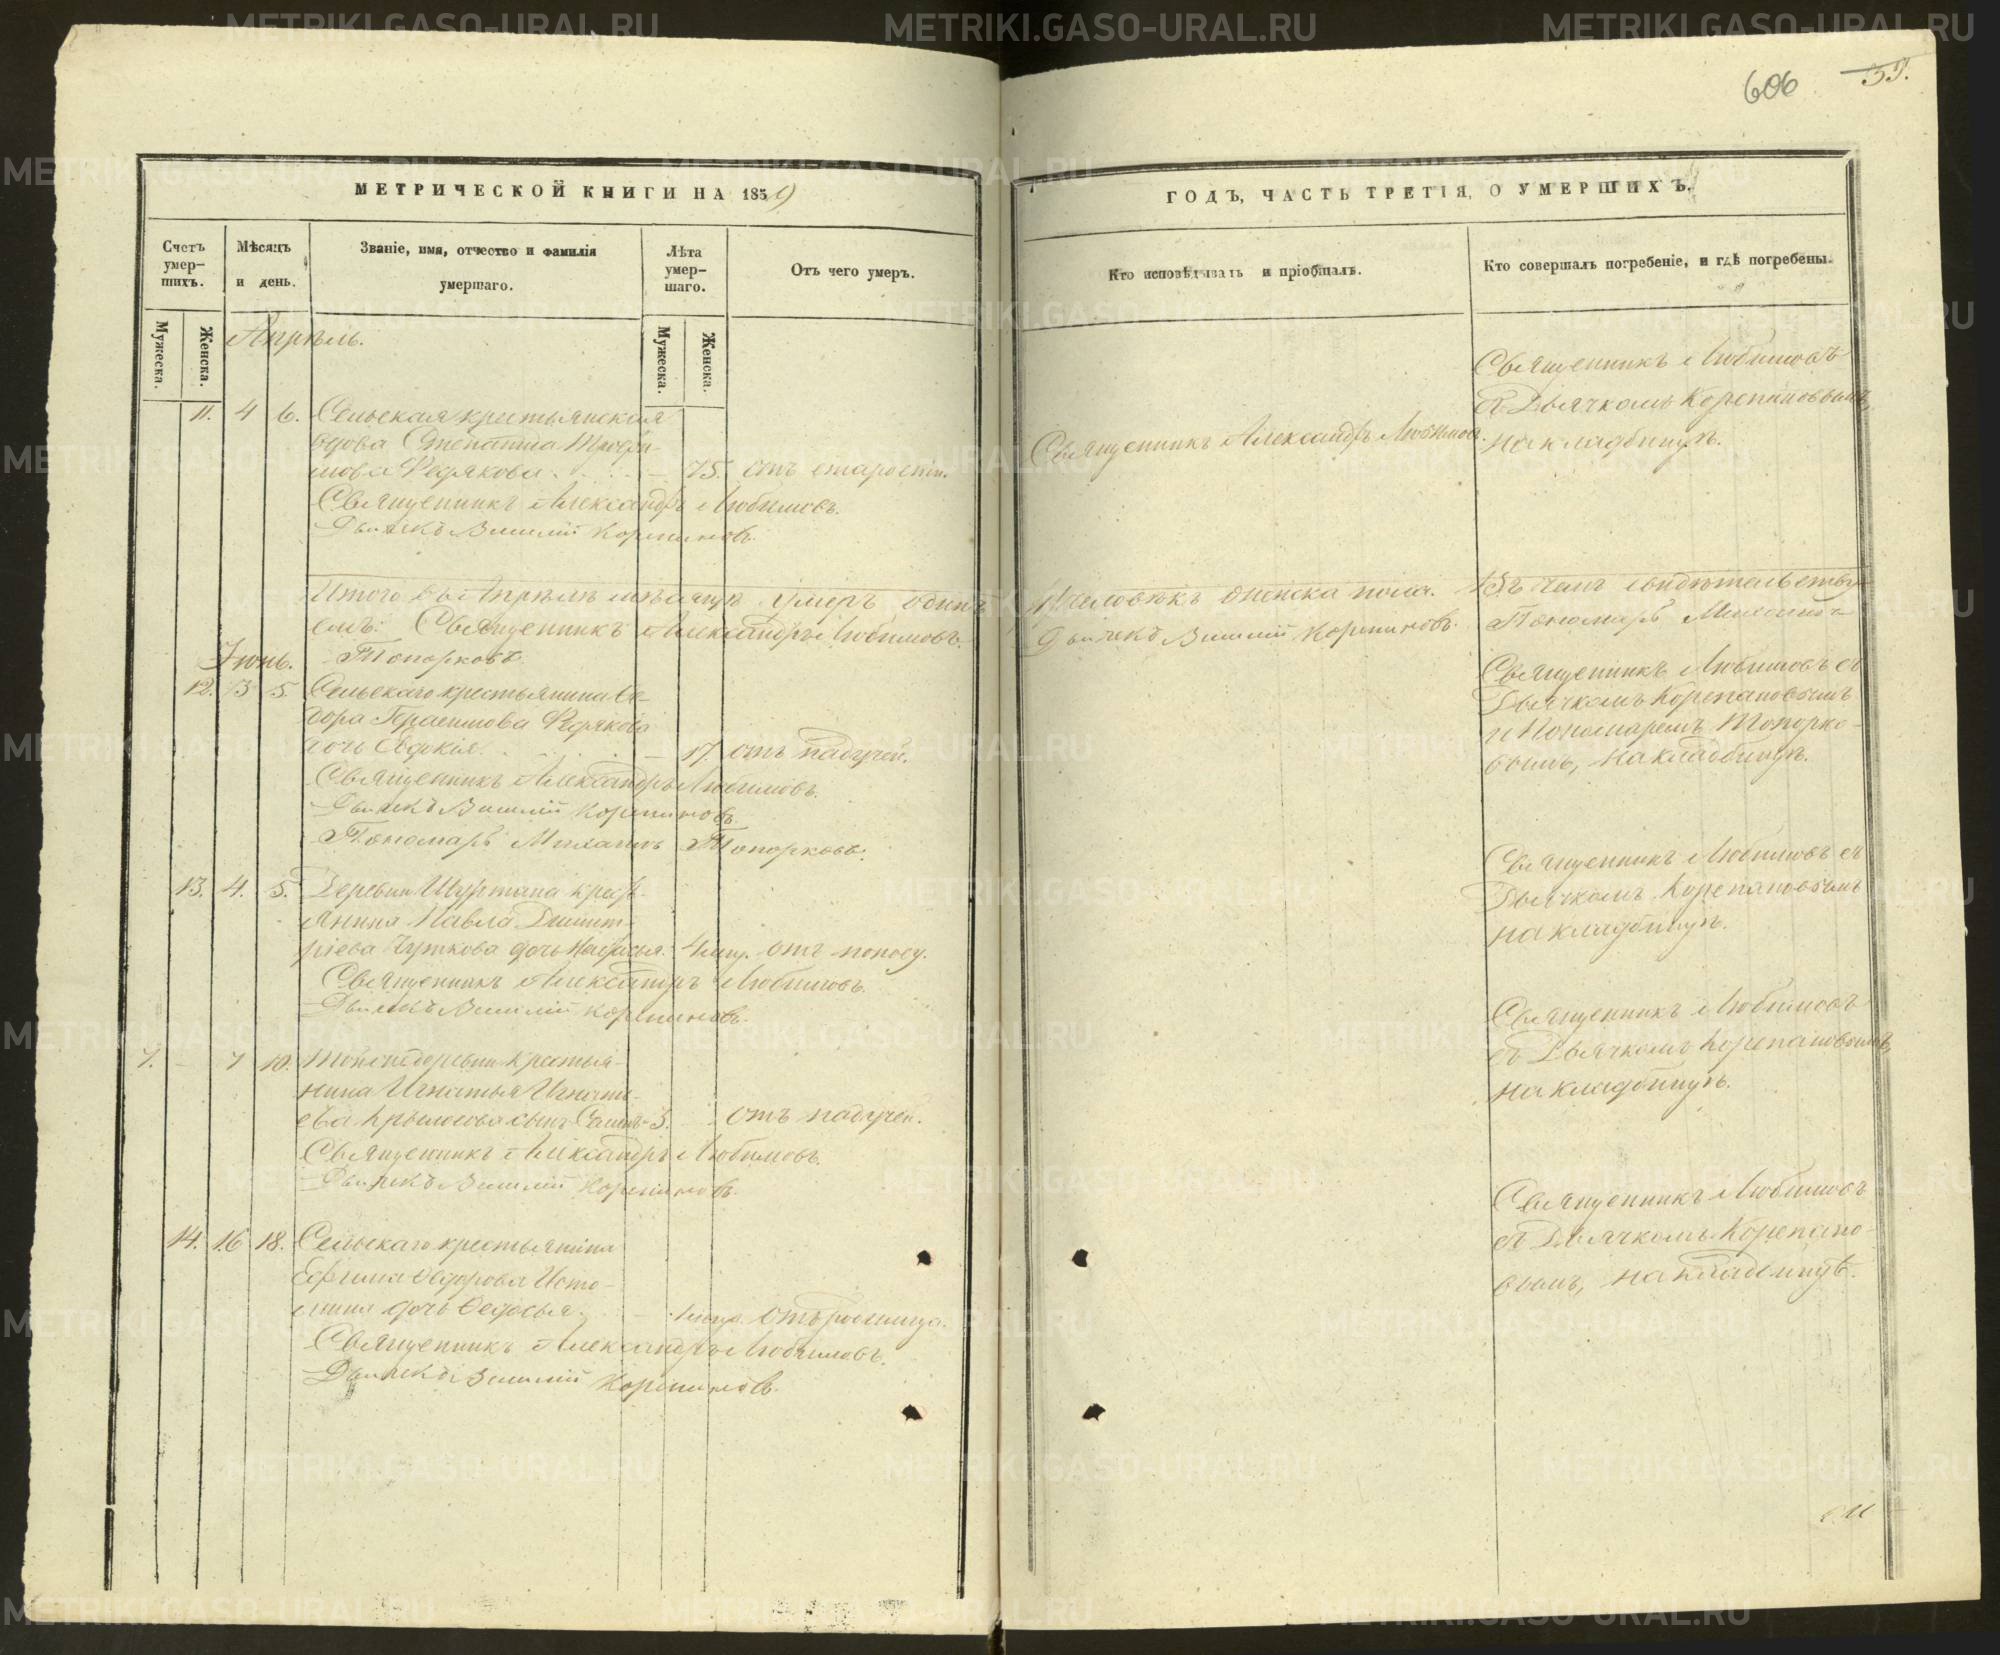 606 37.
МЕТРИЧЕСКОЙ КНИГИ НА 1859
ГОДЪ, ЧАСТЬ ТРЕТІЯ, О УМЕРШИХЪ.
Счетъ умер-
шихъ.
Мѣсяцъ
и день.
Званіе, имя, отчество и фамилія
умершаго.
Лѣта
умер-
шаго.
Отъ чего умеръ.
Кто исповѣдывалъ и пріобщалъ.
Кто совершалъ погребеніе, и гдѣ погребены.
Мужеска.
Женска.
Мужеска.
Женска.
Апрѣль.
11. 4 6. Сельская крестьянская
вдова Степанида Трофи-
мова Федякова. — 75. отъ старости.
Священникъ Александръ Любимовъ.
Дьячекъ Василій Корепановъ.
Священникъ Александръ Любимовъ.
Священникъ Любимовъ
съ Дьячкомъ Корепановымъ,
на кладбищѣ.
Итого въ Апрѣлѣ мѣсяцѣ умеръ одинъ
Священникъ Александръ Любимовъ.
Топорковъ.
человѣкъ женска пола. Въ чемъ свидѣтельству
Дьячекъ Василій Корепановъ. Пономарь Михаилъ
Іюнь.
12. 3 5. Сельскаго крестьянина
Герасимова Федякова
дочь Евдокія. — 17. отъ падучей.
Священникъ Александръ Любимовъ.
Дьячекъ Василій Корепановъ.
Пономарь Михаилъ Топорковъ.
Священникъ Любимовъ съ
Дьячкомъ Корепановымъ
и Пономаремъ Топорко-
вымъ, на кладбищѣ.
13. 4. 5. Деревни Шуртана крест-
янина Павла Димит-
ріева Чуткова дочь 4 отъ поносу.
Священникъ Александръ Любимовъ.
Дьячекъ Василій Корепановъ.
Священникъ Любимовъ съ
Дьячкомъ Корепановымъ
на кладбищѣ.
7. – 7 10. Тойже деревни крестья-
нина Игнатья Игнать-
ева Крылосова сынъ 3. отъ падучей.
Священникъ Александръ Любимовъ.
Дьячекъ Василій Корепановъ.
Священникъ Любимовъ
съ Дьячкомъ Корепановымъ,
на кладбищѣ.
14. 16 18. Сельскаго крестьянина
Ефима Федорова Исто-
мина дочь Федосья. — отъ родимца.
Священникъ Александръ Любимовъ.
Дьячекъ Василій Корепановъ.
Священникъ Любимовъ
съ Дьячкомъ Корепано-
вымъ, на кладбищѣ.
METRIKI.GASO-URAL.RU